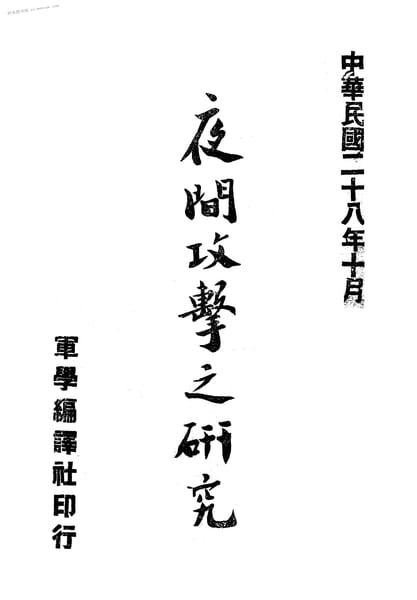 中華民國二十八年十月
夜間攻擊之研究
軍學編譯社印行